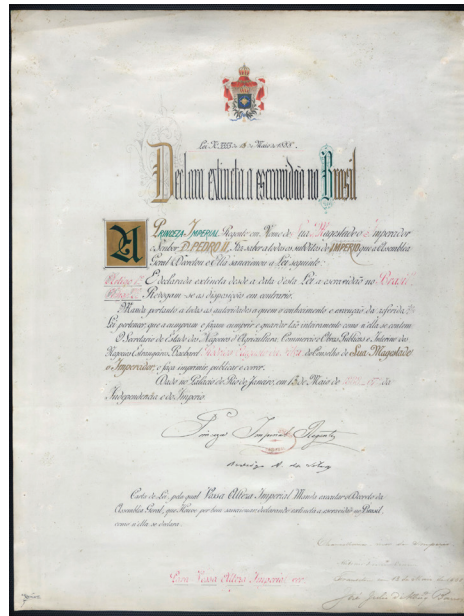 Lei N. 3353 de 13 de Maio de 1888.
Declara extincta a escravidão no Brasil
A PRINCEZA IMPERIAL Regente em Nome de Sua Magestade o Imperador
o Senhor D. PEDRO II, Faz saber a todos os subditos do IMPERIO que a Assembléa
Geral Decretou e Ella sanccionou a Lei seguinte:
Artigo 1º É declarada extincta desde a data desta Lei a escravidão no Brasil.
Artigo 2º Revogam-se as disposições em contrario.
Manda portanto a todas as autoridades a quem o conhecimento e execução da referida
Lei pertencer, que a cumpram e façam cumprir e guardar tão inteiramente como n'ella se contém.
O Secretario de Estado dos Negocios d'Agricultura, Commercio e Obras Publicas e Interino dos
Negocios Estrangeiros, Bacharel Rodrigo Augusto da Silva do Conselho de Sua Magestade
o Imperador, o faça imprimir publicar e correr.
Dado no Palacio do Rio de Janeiro, em 13 de Maio de 1888, 67º da
Independencia e do Imperio.
Princeza Imperial Regente
Rodrigo A. da Silva
Carta de Lei, pela qual Vossa Alteza Imperial Manda executar o Decreto da
Assembléa Geral, que Houve por bem sanccionar declarando extincta a escravidão no Brasil,
como n'ella se declara.
Para Vossa Alteza Imperial ver